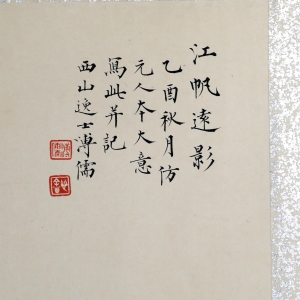 江帆遠影
乙酉秋月仿
元人本大意
寫此并記
西山逸士溥儒